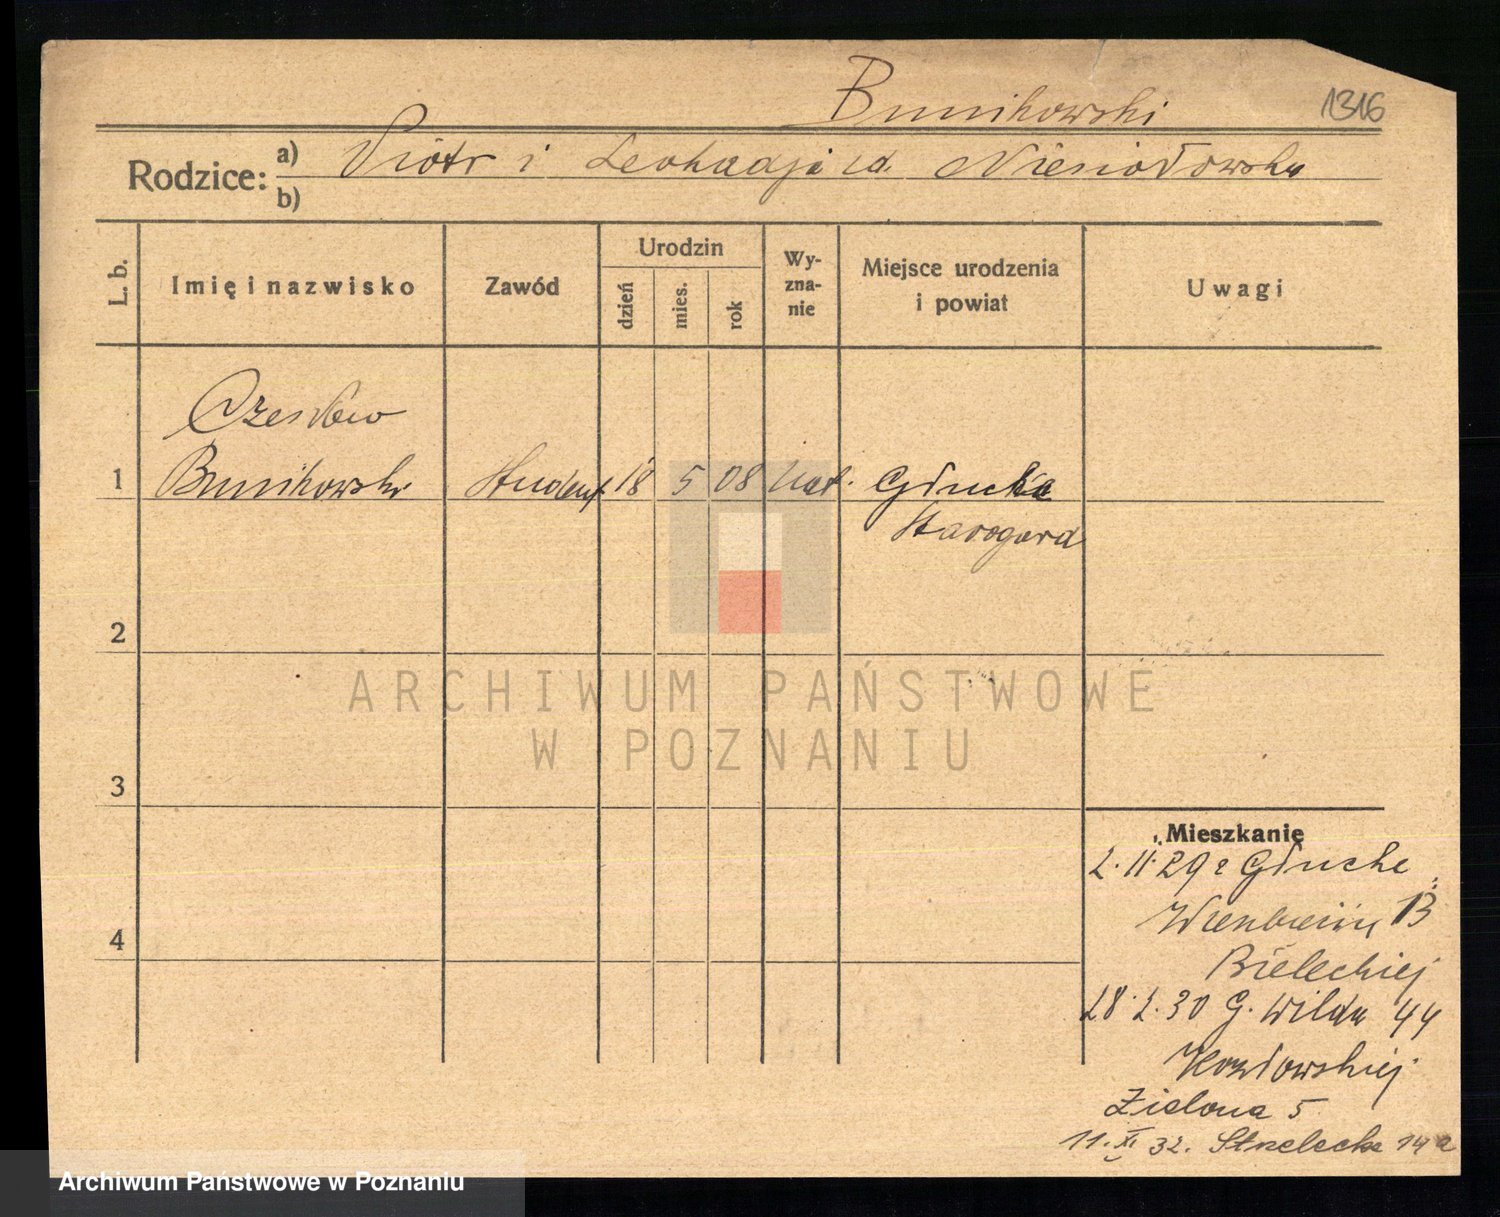 Bunikowski
1316
Rodzice: a) Piotr i Leokadja zd. Niesiołowska
b)
L. b.
Imię i nazwisko
Zawód
Urodzin
dzień
mies.
rok
Wy-
zna-
nie
Miejsce urodzenia
i powiat
Uwagi
Czesław
1 Bunikowski Student 18 5 08 kat. Głuche
Starogard
2
ARCHIWUM PAŃSTWOWE
W POZNANIU
3
Mieszkanie
2.11.29 z Głuche
13
Bieleckiej
28.2.30 G. Wilda 44
Kozłowskiej
Zielona 5
11.XI.32. Strzelecka 14a
4
Archiwum Państwowe w Poznaniu